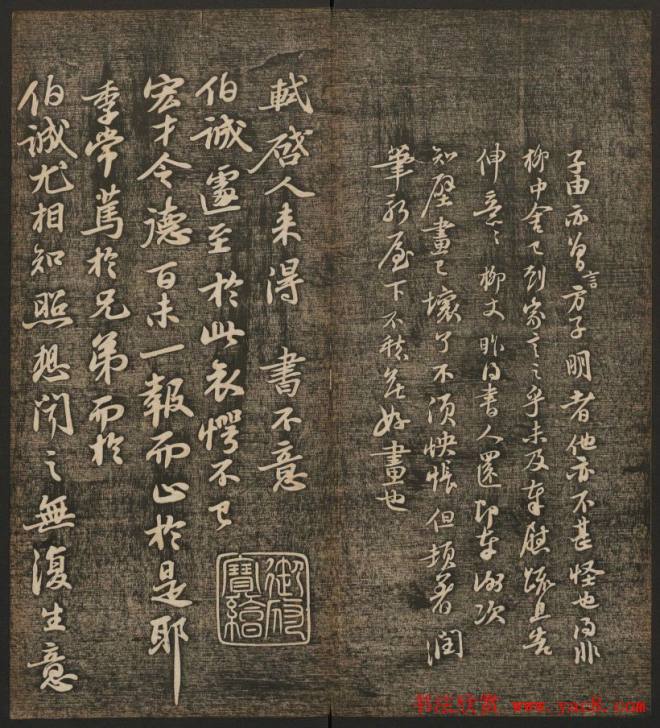 子由亦曾言方子明者他亦不甚怪也得非
柳中舍已到家言之乎未及奉慰疏且告
伸意々柳丈昨得書人還即奉謝次
知壁畫已壞了不須怏悵但頓著潤
筆新屋下不愁無好畫也
軾啓人來得 書不意
伯誠遽至於此哀愕不已
宏才令德百未一報而止於是耶
季常篤於兄弟而於
伯誠尤相知照想聞之無復生意
御府寶繪
书法欣赏 www.yac8.com